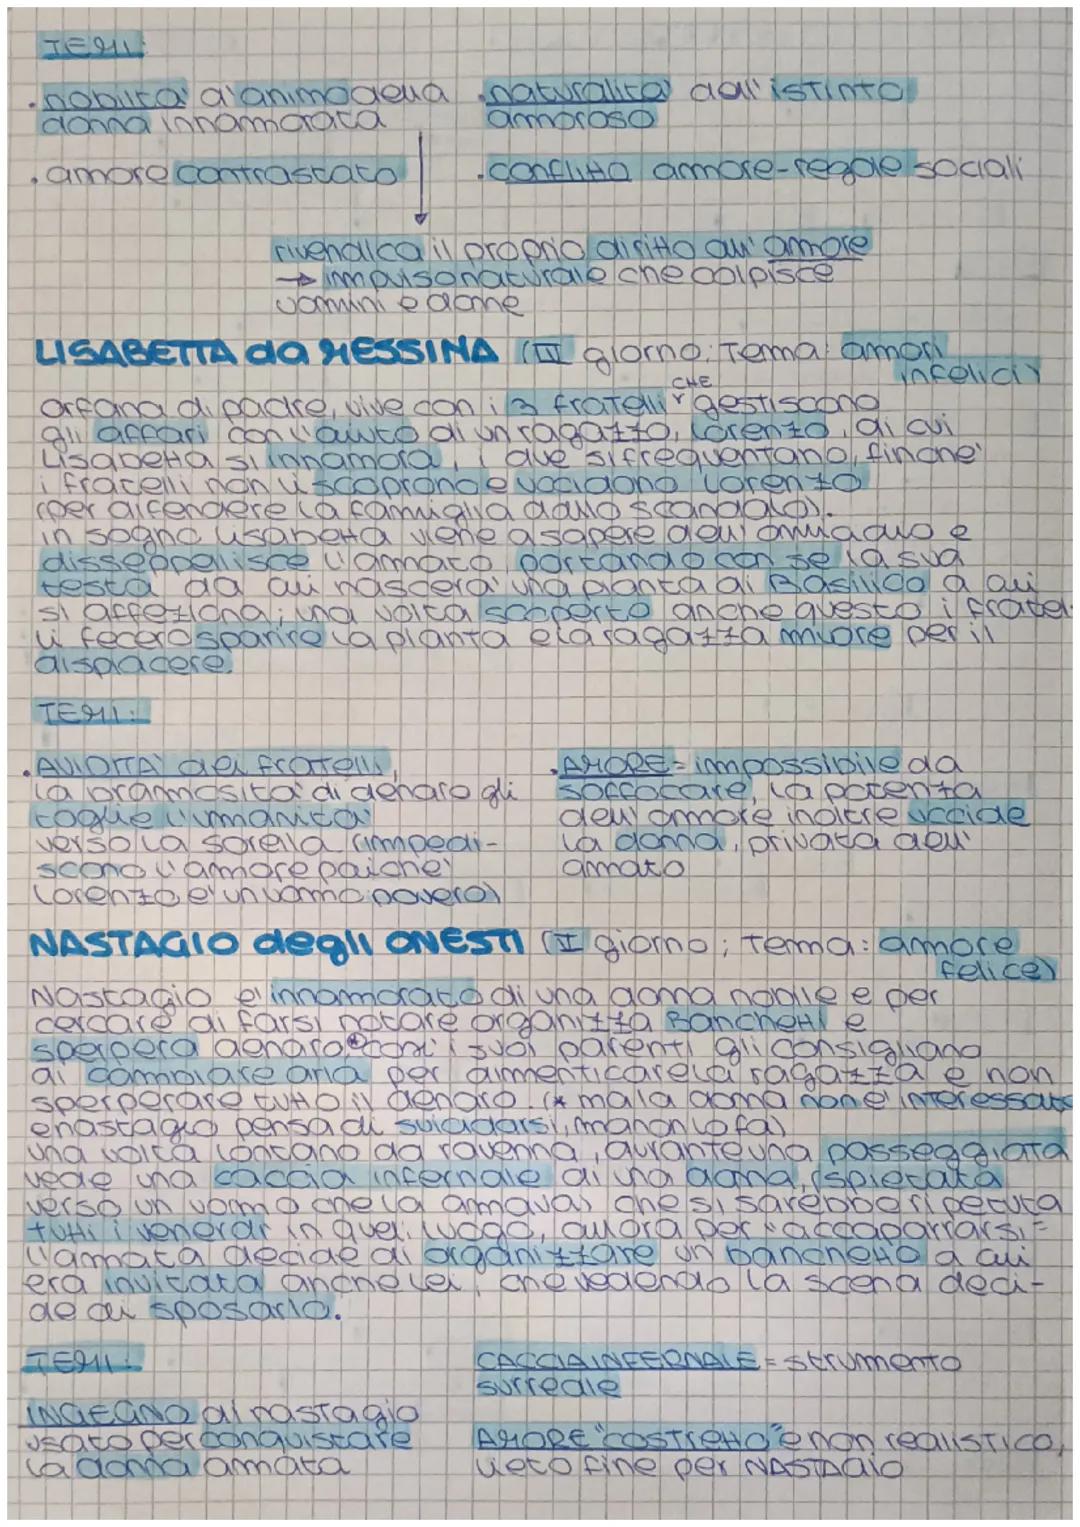 TEMI:
• nobiltà d'animo della
donna innamorata
• naturalità dell'istinto
amoroso
• amore contrastato
• conflitto amore-regole sociali
rivendica il proprio diritto all'amore
→ impulso naturale che colpisce
uomini e donne
LISABETTA da MESSINA (IV giorno; Tema: amori
infelici)
orfana di padre, vive con i 3 fratelli CHE gestiscono
gli affari con l'aiuto di un ragazzo, Lorenzo, di cui
Lisabetta si innamora, i due si frequentano, finchè
i fratelli non li scoprono e uccidono Lorenzo
(per difendere la famiglia dallo scandalo).
in sogno Lisabetta viene a sapere dell'omicidio e
disseppelisce l'amato, portando con se la sua
testa da cui nascerà una pianta di Basilico a cui
si affeziona; una volta scoperto anche questo i fratel-
li fecero sparire la pianta e la ragazza muore per il
dispiacere.
TEMI:
• AVIDITÀ dei fratelli,
la bramosità di denaro gli
toglie l'umanità
verso la sorella (impedi-
scono l'amore poichè
Lorenzo è un uomo povero)
• AMORE = impossibile da
soffocare, la potenza
dell'amore inoltre uccide
la donna, privata dell'
amato
NASTAGIO degli ONESTI (V giorno; tema: amore
felice)
Nastagio è innamorato di una donna nobile e per
cercare di farsi notare organizza Banchetti e
sperpera denaro* così i suoi parenti gli consigliano
di cambiare aria per dimenticare la ragazza e non
sperperare tutto il denaro. (* ma la donna non è interessata
e nastagio pensa di suicidarsi, ma non lo fa)
una volta lontano da ravenna, durante una passeggiata
vede una caccia infernale di una donna, (spietata
verso un uomo che la amava) che si sarebbe ripetuta
tutti i venerdì in quel luogo, allora per "accaparrarsi"
l'amata decide di organizzare un banchetto a cui
era invitata anche lei, che vedendo la scena deci-
de di sposarlo.
TEMI:
INGEGNO di nastagio
usato per conquistare
la donna amata
CACCIA INFERNALE = strumento
surreale
AMORE "costretto" e non realistico,
lieto fine per NASTAGIO